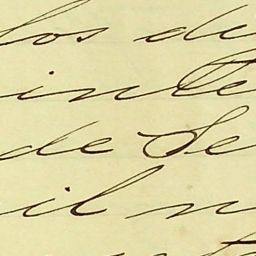 los de
inte
de Se
il n